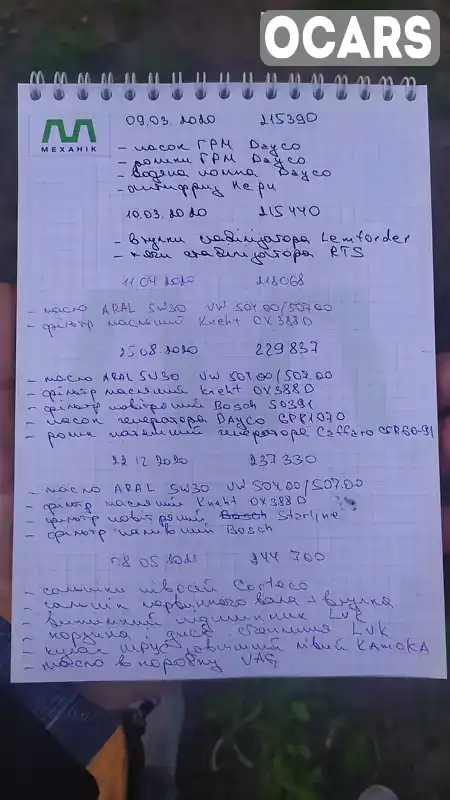 OCARS
МЕХАНІК
09.03.2020 215390
- пасок ГРМ Dayco
- ролики ГРМ Dayco
- водяна помпа Dayco
- антифриз
10.03.2020 215440
- втулки стабілізатора Lemforder
- тяги стабілізатора RTS
11 04 2020 218068
- масло ARAL 5W30 VW 504.00/507.00
- фільтр масляний Kneht OX388D
25.08.2020 229837
- масло ARAL 5W30 VW 504.00/507.00
- фільтр масляний Kneht OX388D
- фільтр повітряний Bosch S0391
- пасок генератора DAyco
- ролик генератора Caffaro
22 12 2020 237330
- масло ARAL 5W30 VW 504.00/507.00
- фільтр масляний Kneht OX388D
- фільтр повітряний Bosch Starline
- фільтр паливний Bosch
08 05 2021 244 700
- сальники півосей Corteco
- сальнік первинного вала + втулка
- вижимний підшипник LUK
- корзина, диск зчеплення LUK
- кулак шруз зовнішній лівий KAMOKA
- масло в коробку VAG